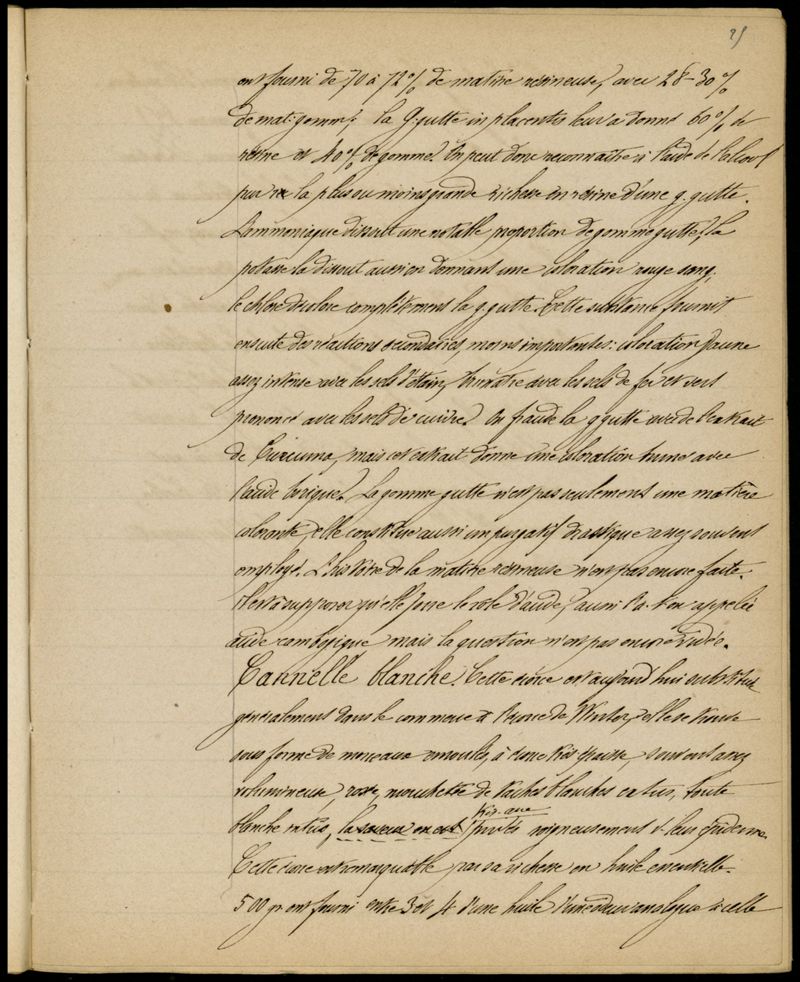 25
ont fourni de 70 à 72% de matière résineuse, avec 28-30%
de mat: gomm; la G: gutte in placentis leur a donné 60% de
résine et 40% de gomme. On peut donc reconnaitre à l'aide de l'alcool
pur la plus ou moins grande richesse en résine d'une g. gutte.
L'ammoniaque dissout une notable proportion de gomme gutte, la
potasse la dissout aussi en donnant une coloration rouge sang.
le chlore décolore complètement la g. gutte. Cette substance fournit
ensuite des réactions secondaires, moins importantes: coloration jaune
assez intense avec les sels d'étain, brunâtre avec les sels de fer et vert
prononcé avec les sels de cuivre. On fraude la g gutte avec de l'extrait
de Curcuma, mais cet extrait donne une coloration brune avec
l'acide borique. La gomme gutte n'est pas seulement une matière
colorante, elle constitue aussi un purgatif drastique assez souvent
employé. L'histoire de la matière résineuse n'est pas encore faite.
il est à supposer qu'elle joue le rôle d'acide, aussi l'a-t-on appelée
acide cambogique mais la question n'est pas encore vidée.
Cannelle blanche. Cette écorce est aujourd'hui substituée
généralement dans le commerce à l'écorce de Winter, elle se trouve
sous forme de morceaux enroulés, à écorce très épaisse, souvent assez
volumineuse, rosée, mouchetée de taches blanches extus, toute
blanche intus, la saveur en est privés soigneusement de leur épiderme.
Cette écorce est remarquable par sa richesse en huile essentielle.
500 gr. ont fourni entre 3 et 4 d'une huile d'une odeur analogue à celle